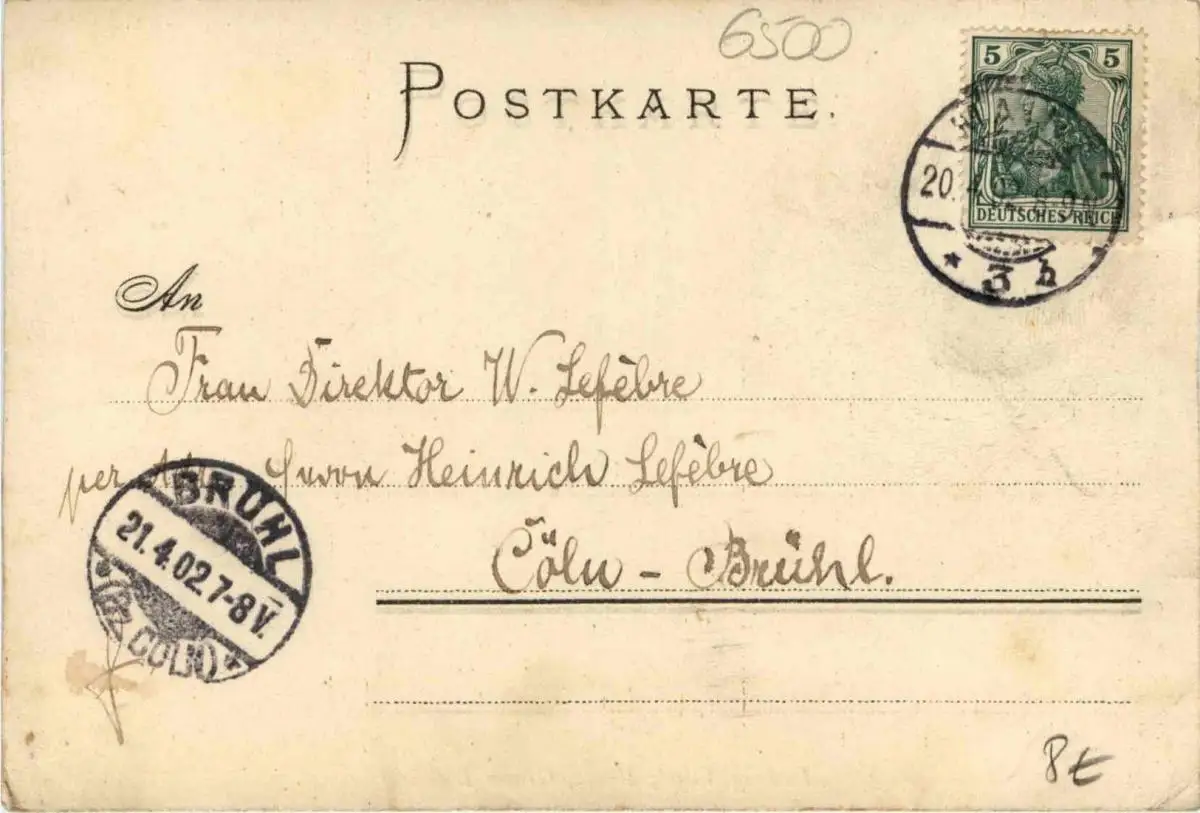 6500
POSTKARTE.
5 5
DEUTSCHES REICH
20. 8-9N
* 3 h *
An
Frau Direktor W. Lefèbre
per Adr. Herrn Heinrich Lefèbre
Cöln - Brühl.
BRÜHL
21.4.02.7-8V.
(Bz. CÖLN)
8€